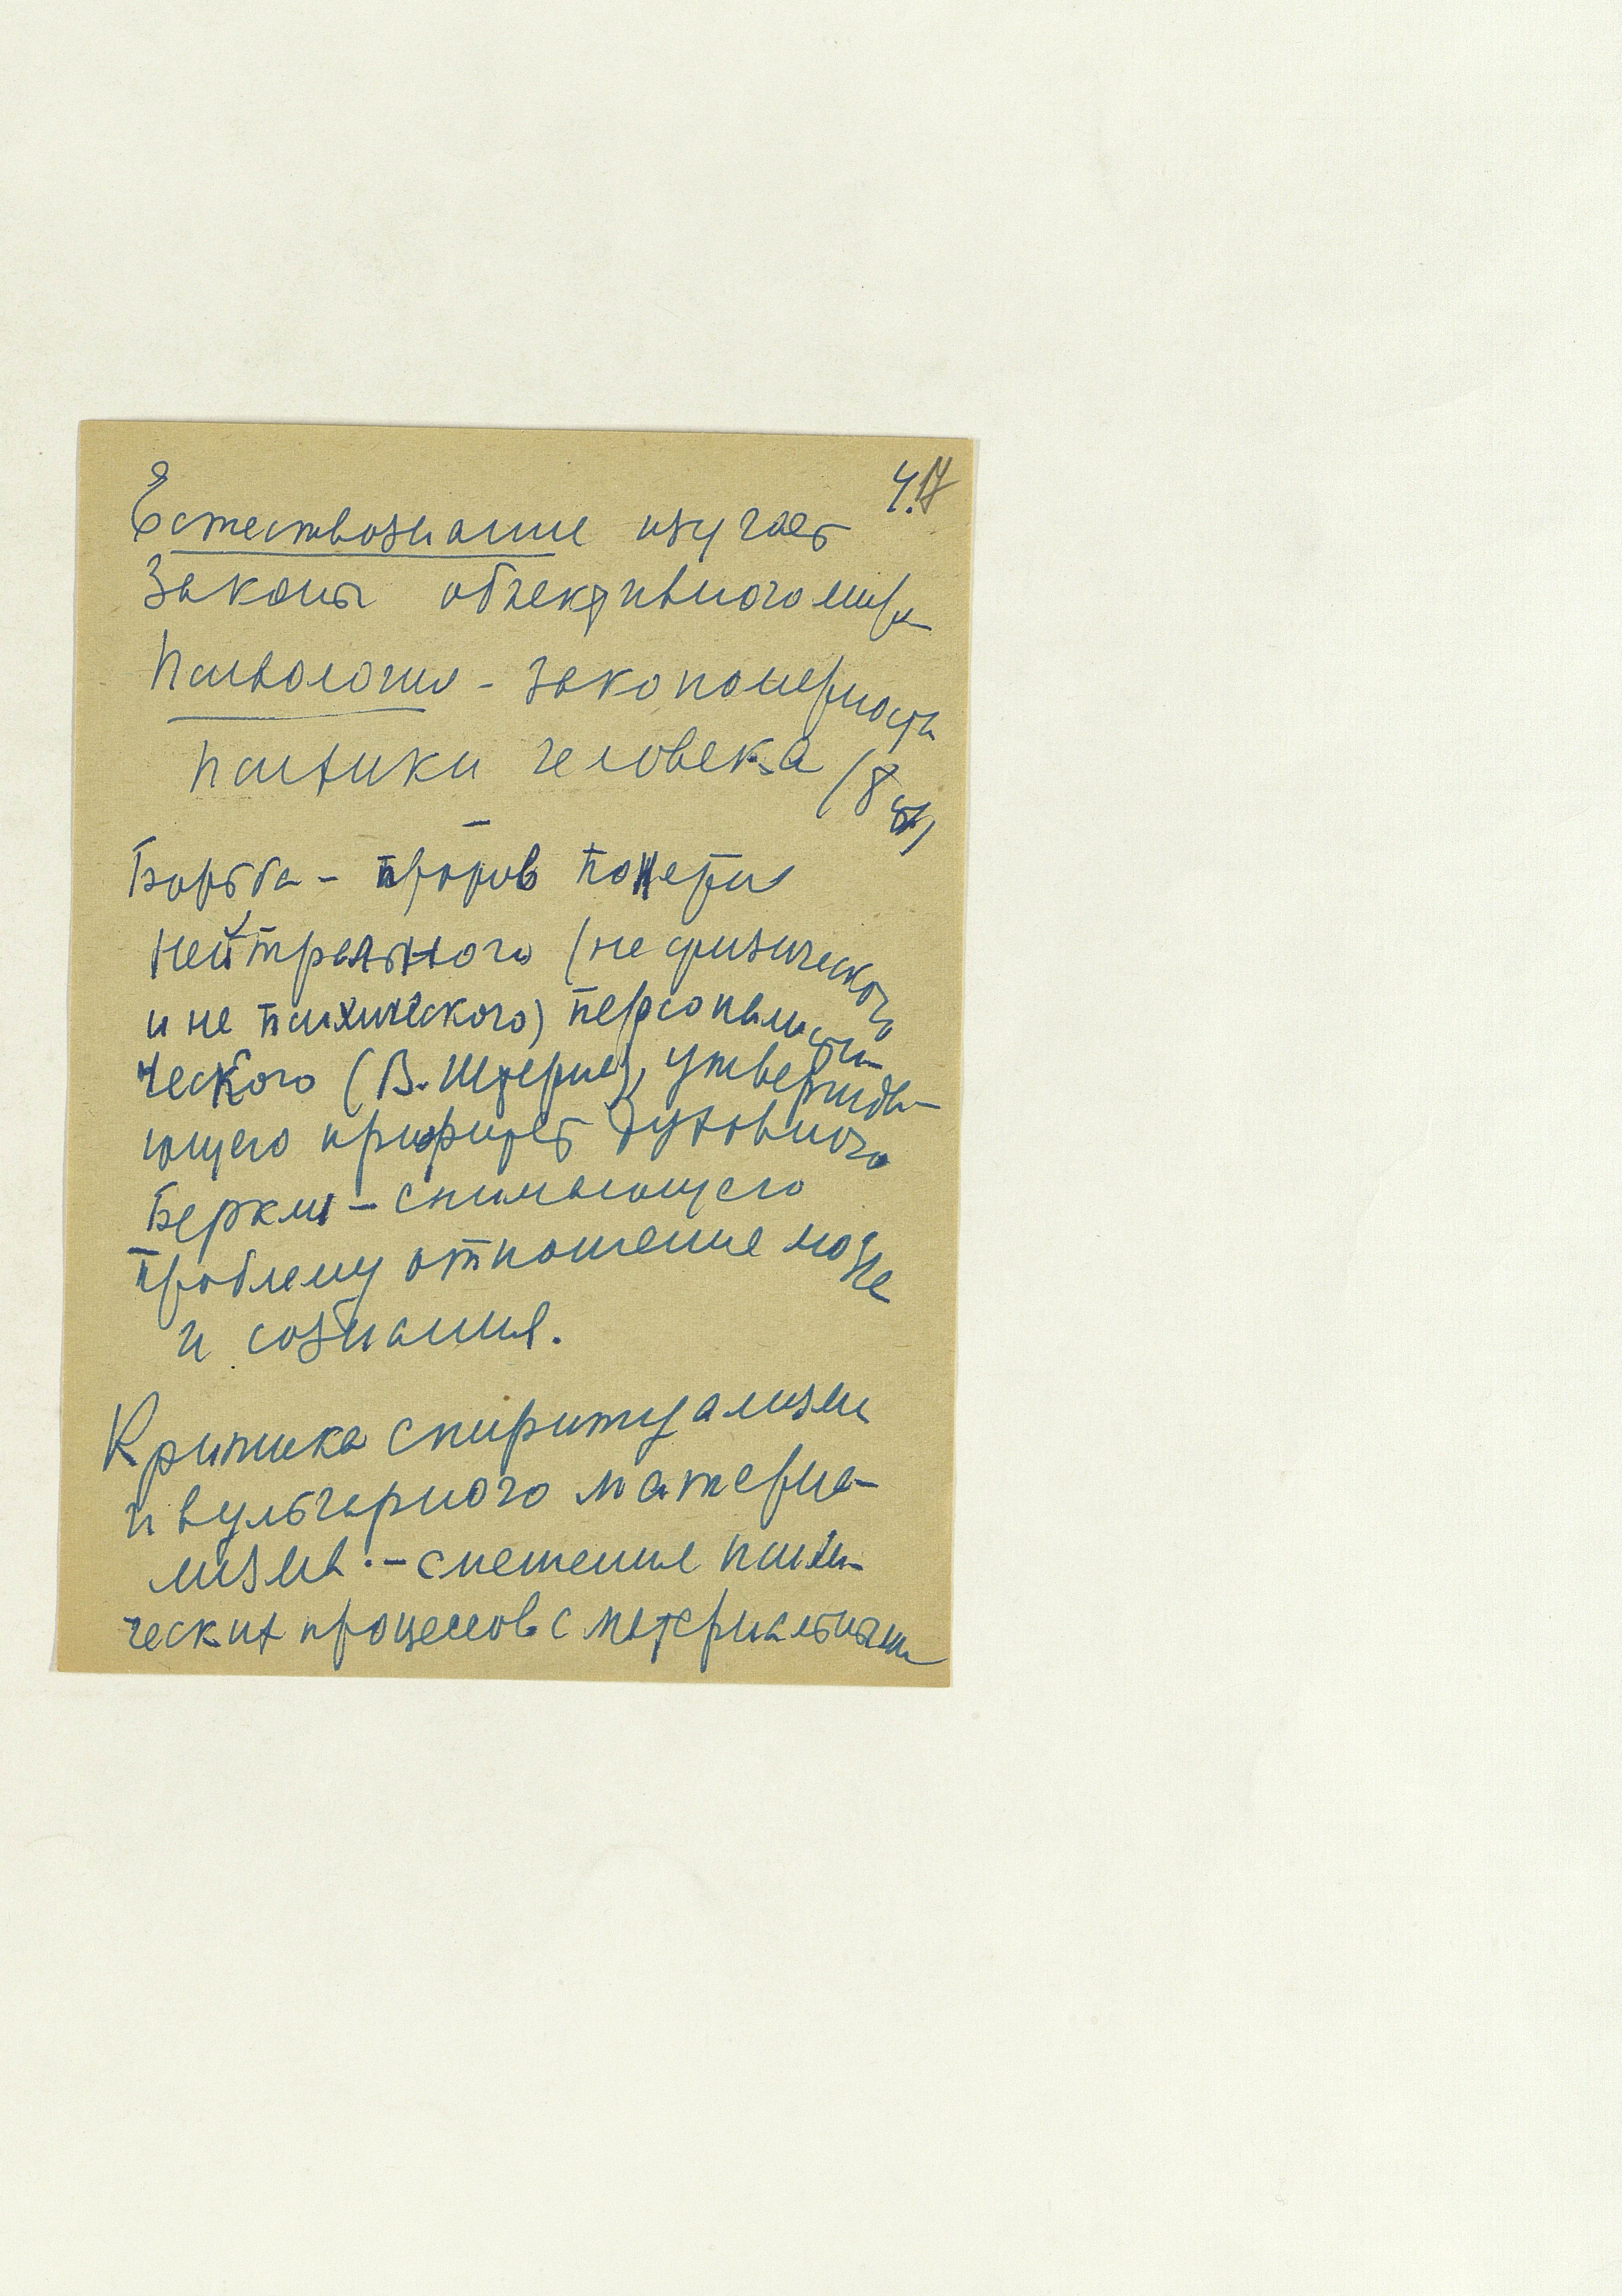 4. 17
Естествознание изучает
Законы объективного мира
Психология - закономерности
психики человека (8
Борьба - против
нейтрального (не физического
и не психического) персоналисти
ческого (В. Штерна), утвержда-
ющего приоритет духовного
Беркли - снимающего
проблему отношение мозга
и сознания.
Критика спиритуализма
и вульгарного материа-
лизма - смешение психи-
ческих процессов с материальными